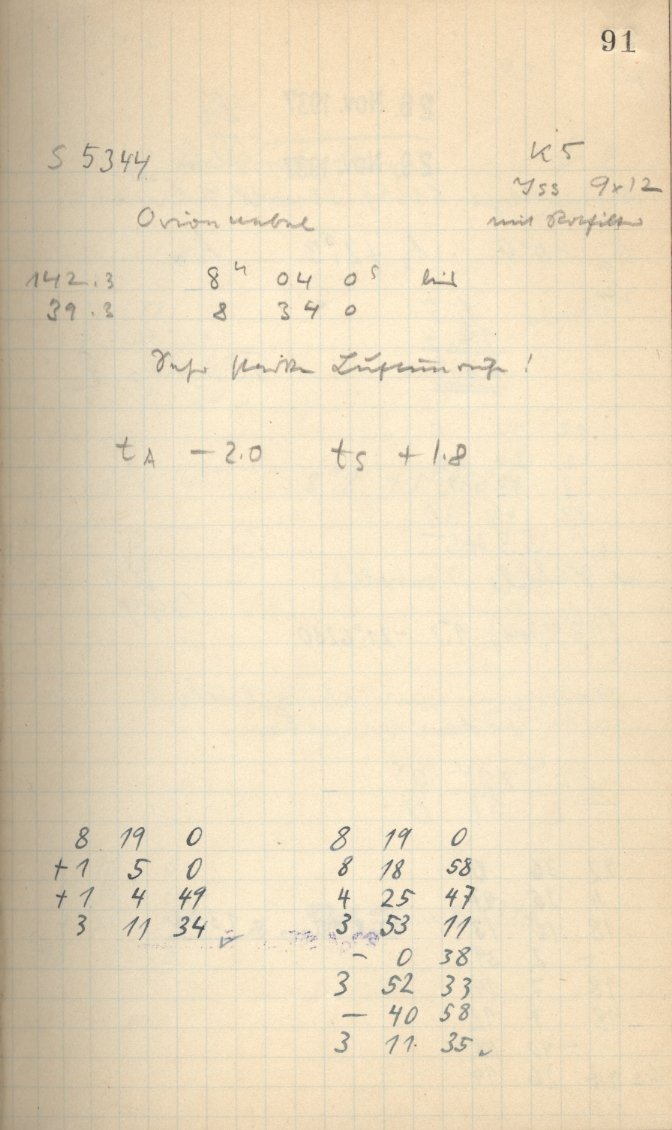 91
S 5344
K 5
Iss 9x12
Orionnebel
mit Rotfilter
142.3 8ʰ 04 0ˢ bis
39.3 8 34 0
Sehr starke Luftunruhe!
t_A − 2.0 t_S + 1.8
8 19 0
+1 5 0
+1 4 49
3 11 34 ✓
8 19 0
8 18 58
4 25 47
3 53 11
− 0 38
3 52 33
− 40 58
3 11 35 ✓